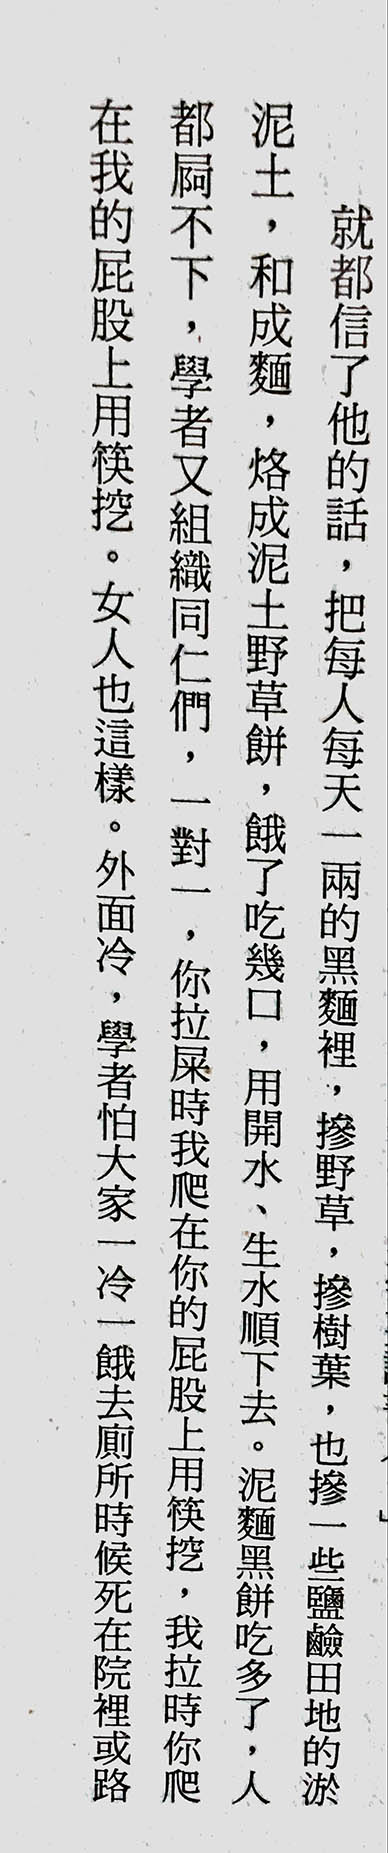 就都信了他的話，把每人每天一兩的黑麵裡，摻野草，摻樹葉，也摻一些鹽鹼田地的淤
泥土，和成麵，烙成泥土野草餅，餓了吃幾口，用開水、生水順下去。泥麵黑餅吃多了，人
都屙不下，學者又組織同仁們，一對一，你拉屎時我爬在你的屁股上用筷挖，我拉時你爬
在我的屁股上用筷挖。女人也這樣。外面冷，學者怕大家一冷一餓去廁所時候死在院裡或路